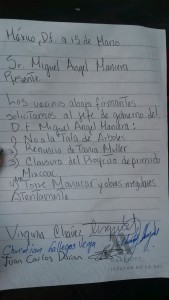 México, D.F. a 15 de Marzo
Sr. Miguel Angel Mancera
Presente
Los vecinos abajo firmantes
solicitamos al Jefe de gobierno del
D.F Miguel Angel Mancera:
1) No a la Tala de Arboles
2) Renuncia de Tania Müller
3) Clausura del Proyecto deprimido
Mixcoac
4) Torre Manacar y obras irregulares
Atentamente
Virginia Chávez
Christian Gallegos Vega
Juan Carlos Durán